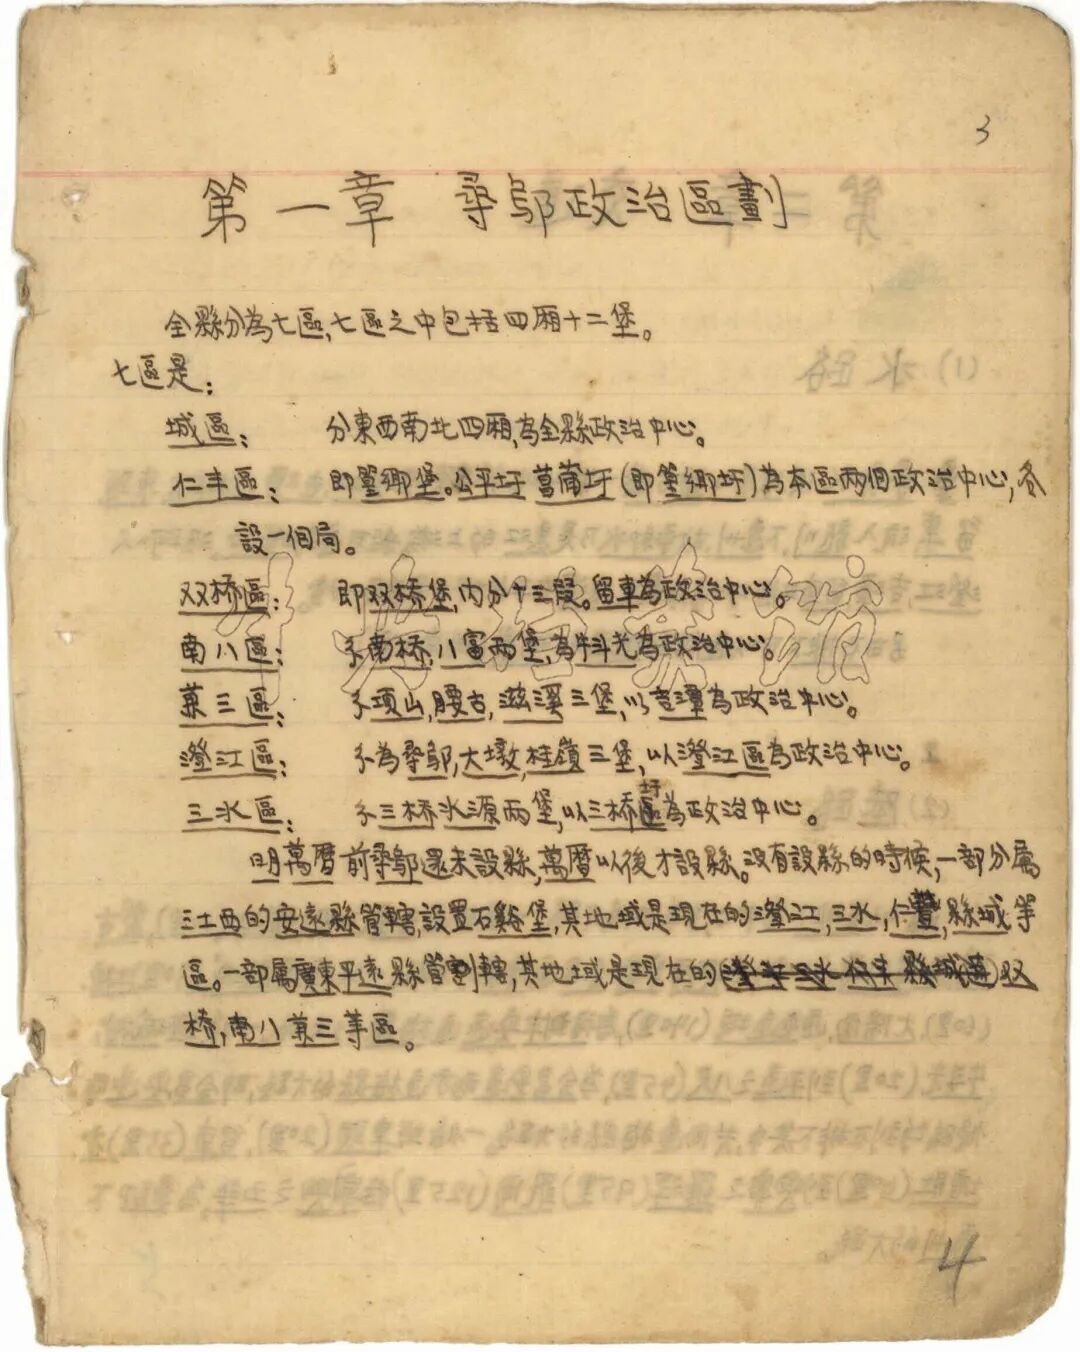 3
第一章 尋鄔政治區劃
全縣分為七區，七區之中包括四廂十二堡。
七區是：
城區： 分東西南北四廂，為全縣政治中心。
仁丰區： 即篁鄉堡。公平圩菖蒲圩（即篁鄉圩）為本區兩個政治中心，各
設一個局。
双桥區： 即双桥堡，内分十三段。留車為政治中心。
南八區： 分南桥，八富两堡，為牛斗光為政治中心。
兼三區： 分項山，腰古，滋溪三堡，以吉潭為政治中心。
澄江區： 分為尋鄔，大墩，桂嶺三堡，以澄江區為政治中心。
三水區： 分三桥水源两堡，以三桥圩區為政治中心。
明萬曆前尋鄔還未設縣，萬曆以後才設縣。沒有設縣的時候，一部分属
江西的安遠縣管轄，設置石谿堡，其地域是現在的澄江，三水，仁豐，縣城等
區。一部属廣東平遠縣管轄，其地域是現在的（澄江三水仁丰縣城）双
桥，南八兼三等區。
4